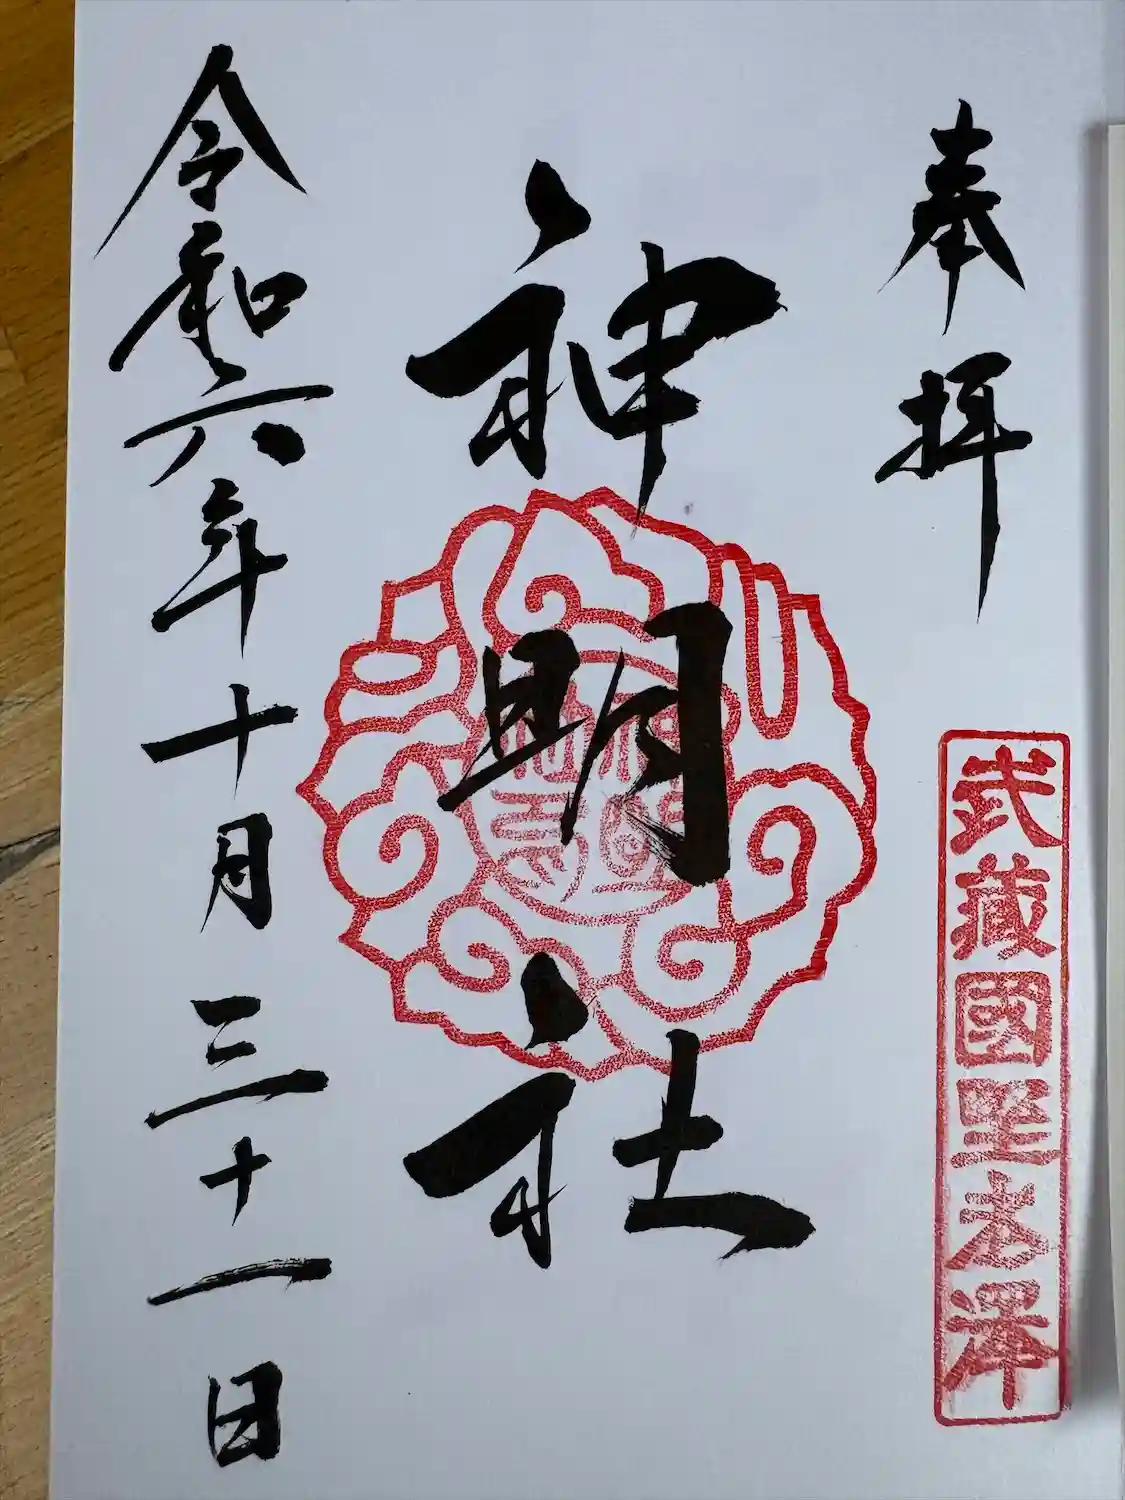 奉拝
武藏國埜老澤
神明社
令和六年十月三十一日